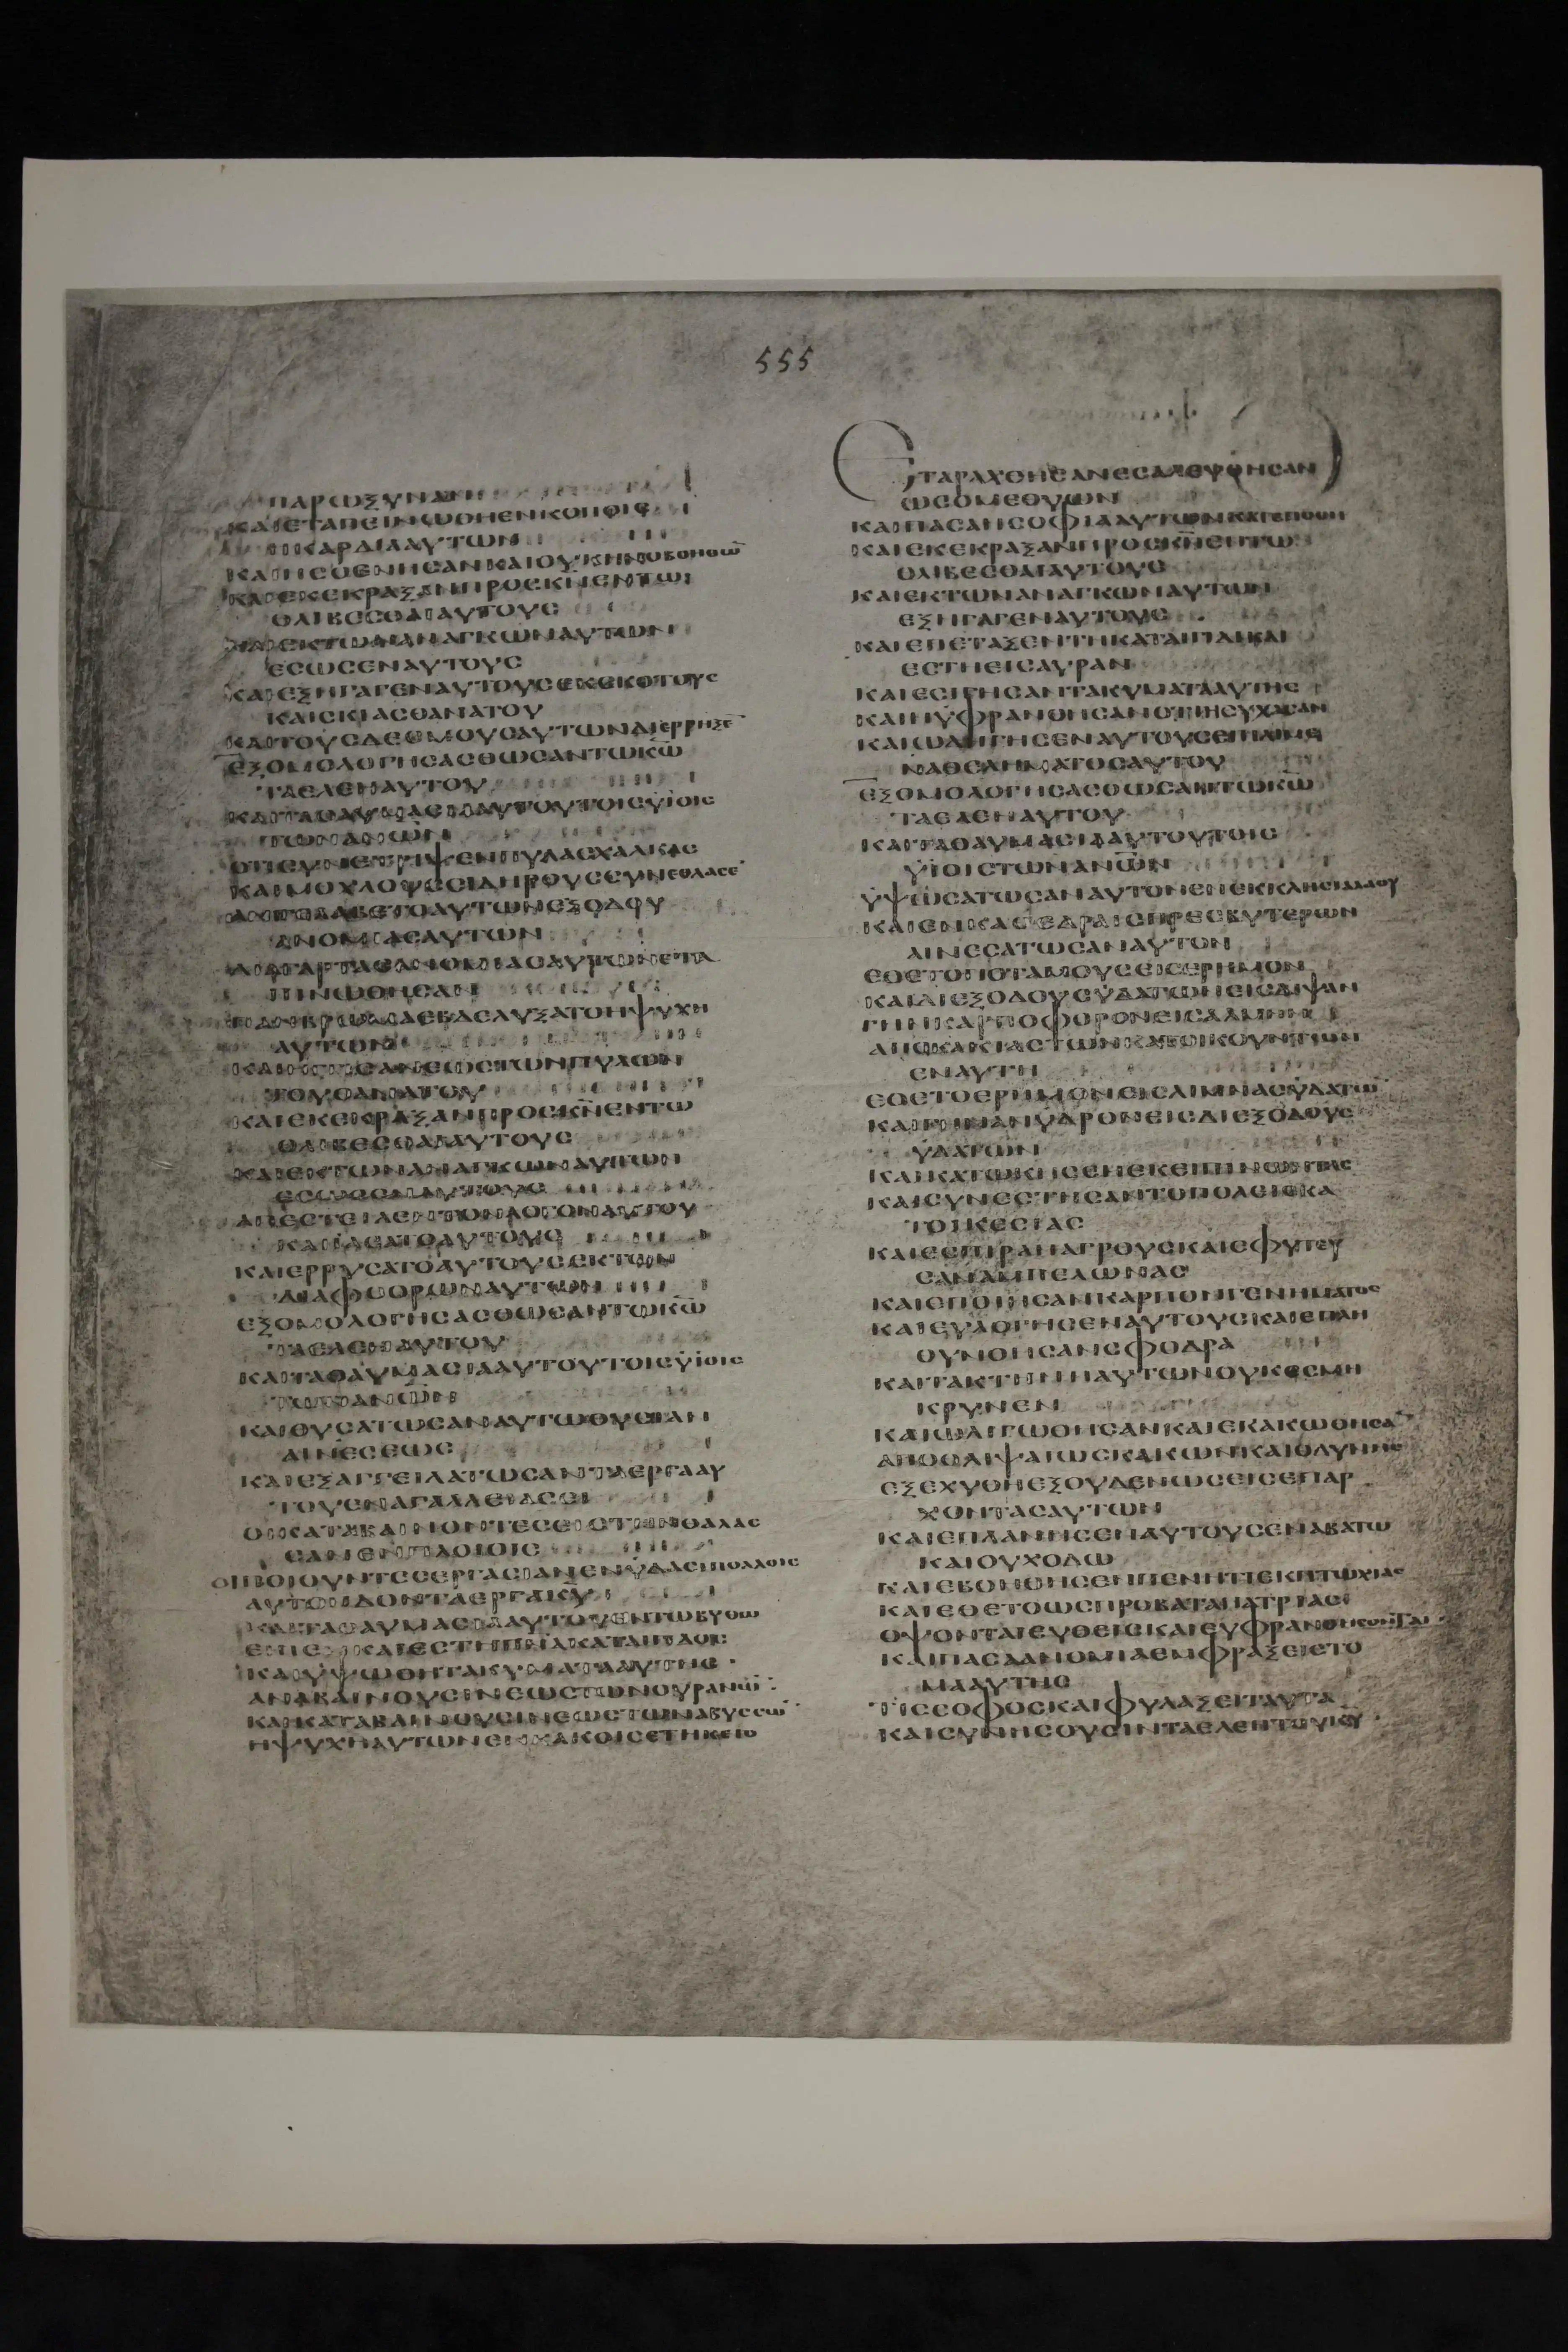 555
ΠΑΡΩΞΥΝΑΝ
ΚΑΙΕΤΑΠΕΙΝΩΘΗΕΝΚΟΠΟΙΣ
ΗΚΑΡΔΙΑΑΥΤΩΝ
ΚΑΙΗΣΘΕΝΗΣΑΝΚΑΙΟΥΚΗΝΟΒΟΗΘΩ̅
ΚΑΙΕΚΕΚΡΑΞΑΝΠΡΟΣΚ̅Ν̅ΕΝΤΩ
ΘΛΙΒΕΣΘΑΙΑΥΤΟΥΣ
ΚΑΙΕΚΤΩΝΑΝΑΓΚΩΝΑΥΤΩΝ
ΕΣΩΣΕΝΑΥΤΟΥΣ
ΚΑΙΕΞΗΓΑΓΕΝΑΥΤΟΥΣΕΚΣΚΟΤΟΥΣ
ΚΑΙΣΚΙΑΣΘΑΝΑΤΟΥ
ΚΑΙΤΟΥΣΔΕΣΜΟΥΣΑΥΤΩΝΔΙΕΡΡΗΞΕ̅
ΕΞΟΜΟΛΟΓΗΣΑΣΘΩΣΑΝΤΩΚ̅Ω̅
ΤΑΕΛΕΗΑΥΤΟΥ
ΚΑΙΤΑΘΑΥΜΑΣΙΑΑΥΤΟΥΤΟΙΣΥΪΟΙΣ
ΤΩΝΑΝ̅Ω̅Ν̅
ΟΤΙΣΥΝΕΤΡΙΨΕΝΠΥΛΑΣΧΑΛΚΑΣ
ΚΑΙΜΟΧΛΟΥΣΣΙΔΗΡΟΥΣΣΥΝΕΘΛΑΣΕ̅
ΑΝΤΕΛΑΒΕΤΟΑΥΤΩΝΕΞΟΔΟΥ
ΑΝΟΜΙΑΣΑΥΤΩΝ
ΔΙΑΓΑΡΤΑΣΑΝΟΜΙΑΣΑΥΤΩΝΕΤΑ
ΠΙΝΩΘΗΣΑΝ
ΠΑΝΒΡΩΜΑΕΒΔΕΛΥΞΑΤΟΗΨΥΧΗ
ΑΥΤΩΝ
ΚΑΙΗΓΓΙΣΑΝΕΩΣΤΩΝΠΥΛΩΝ
ΤΟΥΘΑΝΑΤΟΥ
ΚΑΙΕΚΕΚΡΑΞΑΝΠΡΟΣΚ̅Ν̅ΕΝΤΩ
ΘΛΙΒΕΣΘΑΙΑΥΤΟΥΣ
ΚΑΙΕΚΤΩΝΑΝΑΓΚΩΝΑΥΤΩΝ
ΕΣΩΣΕΝΑΥΤΟΥΣ
ΑΠΕΣΤΕΙΛΕΝΤΟΝΛΟΓΟΝΑΥΤΟΥ
ΚΑΙΙΑΣΑΤΟΑΥΤΟΥΣ
ΚΑΙΕΡΡΥΣΑΤΟΑΥΤΟΥΣΕΚΤΩΝ
ΔΙΑΦΘΟΡΩΝΑΥΤΩΝ
ΕΞΟΜΟΛΟΓΗΣΑΣΘΩΣΑΝΤΩΚ̅Ω̅
ΤΑΕΛΕΗΑΥΤΟΥ
ΚΑΙΤΑΘΑΥΜΑΣΙΑΑΥΤΟΥΤΟΙΣΥΪΟΙΣ
ΤΩΝΑΝ̅Ω̅Ν̅
ΚΑΙΘΥΣΑΤΩΣΑΝΑΥΤΩΘΥΣΙΑΝ
ΑΙΝΕΣΕΩΣ
ΚΑΙΕΞΑΓΓΕΙΛΑΤΩΣΑΝΤΑΕΡΓΑΑΥ
ΤΟΥΕΝΑΓΑΛΛΕΙΑΣΕΙ
ΟΙΚΑΤΑΒΑΙΝΟΝΤΕΣΕΙΣΤΗΝΘΑΛΑΣ
ΣΑΝΕΝΠΛΟΙΟΙΣ
ΟΙΠΟΙΟΥΝΤΕΣΕΡΓΑΣΙΑΝΕΝΫΔΑΣΙΠΟΛΛΟΙΣ
ΑΥΤΟΙΙΔΟΝΤΑΕΡΓΑΚ̅Υ̅
ΚΑΙΤΑΘΑΥΜΑΣΙΑΑΥΤΟΥΕΝΤΩΒΥΘΩ
ΕΙΠΕΝΚΑΙΕΣΤΗΠΝ̅Α̅ΚΑΤΑΙΓΙΔΟΣ
ΚΑΙΥΨΩΘΗΤΑΚΥΜΑΤΑΑΥΤΗΣ
ΑΝΑΒΑΙΝΟΥΣΙΝΕΩΣΤΩΝΟΥΡΑΝΩ̅
ΚΑΙΚΑΤΑΒΑΙΝΟΥΣΙΝΕΩΣΤΩΝΑΒΥΣΣΩ̅
ΗΨΥΧΗΑΥΤΩΝΕΝΚΑΚΟΙΣΕΤΗΚΕΤΟ
ΕΤΑΡΑΧΘΗΣΑΝΕΣΑΛΕΥΘΗΣΑΝ
ΩΣΟΜΕΘΥΩΝ
ΚΑΙΠΑΣΑΗΣΟΦΙΑΑΥΤΩΝΚΑΤΕΠΟΘΗ
ΚΑΙΕΚΕΚΡΑΞΑΝΠΡΟΣΚ̅Ν̅ΕΝΤΩ
ΘΛΙΒΕΣΘΑΙΑΥΤΟΥΣ
ΚΑΙΕΚΤΩΝΑΝΑΓΚΩΝΑΥΤΩΝ
ΕΞΗΓΑΓΕΝΑΥΤΟΥΣ
ΚΑΙΕΠΕΤΑΞΕΝΤΗΚΑΤΑΙΓΙΔΙΚΑΙ
ΕΣΤΗΕΙΣΑΥΡΑΝ
ΚΑΙΕΣΙΓΗΣΑΝΤΑΚΥΜΑΤΑΑΥΤΗΣ
ΚΑΙΗΥΦΡΑΝΘΗΣΑΝΟΤΙΗΣΥΧΑΣΑΝ
ΚΑΙΩΔΗΓΗΣΕΝΑΥΤΟΥΣΕΠΙΛΙΜΕ
ΝΑΘΕΛΗΜΑΤΟΣΑΥΤΟΥ
ΕΞΟΜΟΛΟΓΗΣΑΣΘΩΣΑΝΤΩΚ̅Ω̅
ΤΑΕΛΕΗΑΥΤΟΥ
ΚΑΙΤΑΘΑΥΜΑΣΙΑΑΥΤΟΥΤΟΙΣ
ΥΪΟΙΣΤΩΝΑΝ̅Ω̅Ν̅
ΫΨΩΣΑΤΩΣΑΝΑΥΤΟΝΕΝΕΚΚΛΗΣΙΑΛΑΟΥ
ΚΑΙΕΝΚΑΘΕΔΡΑΙΣΠΡΕΣΒΥΤΕΡΩΝ
ΑΙΝΕΣΑΤΩΣΑΝΑΥΤΟΝ
ΕΘΕΤΟΠΟΤΑΜΟΥΣΕΙΣΕΡΗΜΟΝ
ΚΑΙΔΙΕΞΟΔΟΥΣΫΔΑΤΩΝΕΙΣΔΙΨΑΝ
ΓΗΝΚΑΡΠΟΦΟΡΟΝΕΙΣΑΛΜΗΝ
ΑΠΟΚΑΚΙΑΣΤΩΝΚΑΤΟΙΚΟΥΝΤΩΝ
ΕΝΑΥΤΗ
ΕΘΕΤΟΕΡΗΜΟΝΕΙΣΛΙΜΝΑΣΫΔΑΤΩ̅
ΚΑΙΓΗΝΑΝΥΔΡΟΝΕΙΣΔΙΕΞΟΔΟΥΣ
ΫΔΑΤΩΝ
ΚΑΙΚΑΤΩΚΗΣΕΝΕΚΕΙΠΙΝΩΝΤΑΣ
ΚΑΙΣΥΝΕΣΤΗΣΑΝΤΟΠΟΛΕΙΣΚΑ
ΤΟΙΚΕΣΙΑΣ
ΚΑΙΕΣΠΙΡΑΝΑΓΡΟΥΣΚΑΙΕΦΥΤΕΥ
ΣΑΝΑΜΠΕΛΩΝΑΣ
ΚΑΙΕΠΟΙΗΣΑΝΚΑΡΠΟΝΓΕΝΗΜΑΤΟΣ
ΚΑΙΕΥΛΟΓΗΣΕΝΑΥΤΟΥΣΚΑΙΕΠΛΗ
ΘΥΝΘΗΣΑΝΣΦΟΔΡΑ
ΚΑΙΤΑΚΤΗΝΗΑΥΤΩΝΟΥΚΕΣΜΗ
ΚΡΥΝΕΝ
ΚΑΙΩΛΙΓΩΘΗΣΑΝΚΑΙΕΚΑΚΩΘΗΣΑ̅
ΑΠΟΘΛΙΨΑΙΩΣΚΑΚΩΝΚΑΙΟΔΥΝΗΣ
ΕΞΕΧΥΘΗΕΞΟΥΔΕΝΩΣΕΙΣΕΠΑΡ
ΧΟΝΤΑΣΑΥΤΩΝ
ΚΑΙΕΠΛΑΝΗΣΕΝΑΥΤΟΥΣΕΝΑΒΑΤΩ
ΚΑΙΟΥΧΟΔΩ
ΚΑΙΕΒΟΗΘΗΣΕΝΠΕΝΗΤΙΕΚΠΤΩΧΙΑΣ
ΚΑΙΕΘΕΤΟΩΣΠΡΟΒΑΤΑΠΑΤΡΙΑΣ
ΟΨΟΝΤΑΙΕΥΘΕΙΣΚΑΙΕΥΦΡΑΝΘΗΣΟΝΤΑΙ
ΚΑΙΠΑΣΑΑΝΟΜΙΑΕΜΦΡΑΞΕΙΕΤΟ
ΜΑΑΥΤΗΣ
ΤΙΣΣΟΦΟΣΚΑΙΦΥΛΑΞΕΙΤΑΥΤΑ
ΚΑΙΣΥΝΗΣΟΥΣΙΝΤΑΕΛΕΗΤΟΥΚ̅Υ̅